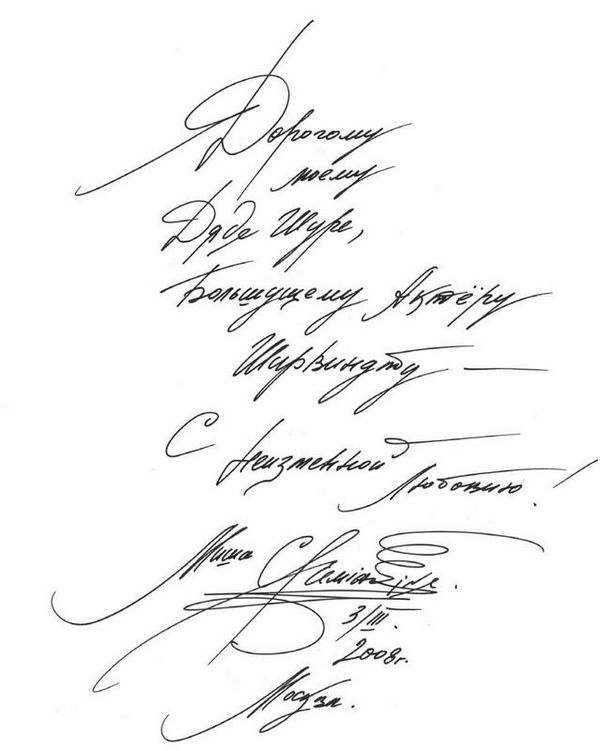 Дорогому
моему
Дяде Шуре,
Большущему Актёру
Ширвиндту —
С неизменной Любовью!
Миша Chemiakine.
3/III.
2008г.
Москва.